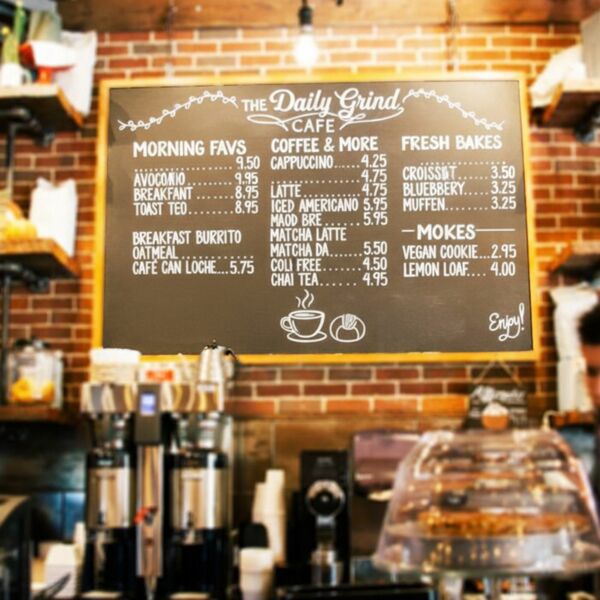 THE Daily Grind
CAFE
MORNING FAVS
........................9.50
AVOCONIO..........9.95
BREAKFANT........8.95
TOAST TEO..........8.95
BREAKFAST BURRITO
OATMEAL..................
CAFÉ CAN LOCHE...5.75
COFFEE & MORE
CAPPUCCINO......4.25
........................4.75
LATTE..................4.75
ICED AMERICANO 5.95
MAOD BRE..........5.95
MATCHA LATTE
MATCHA DA........5.50
COLI FREE..........4.50
CHAI TEA............4.95
FRESH BAKES
....................
CROISSNT........3.50
BLUEBBERY......3.25
MUFFEN............3.25
MOKES
VEGAN COOKIE...2.95
LEMON LOAF.... 4.00
Enjoy!